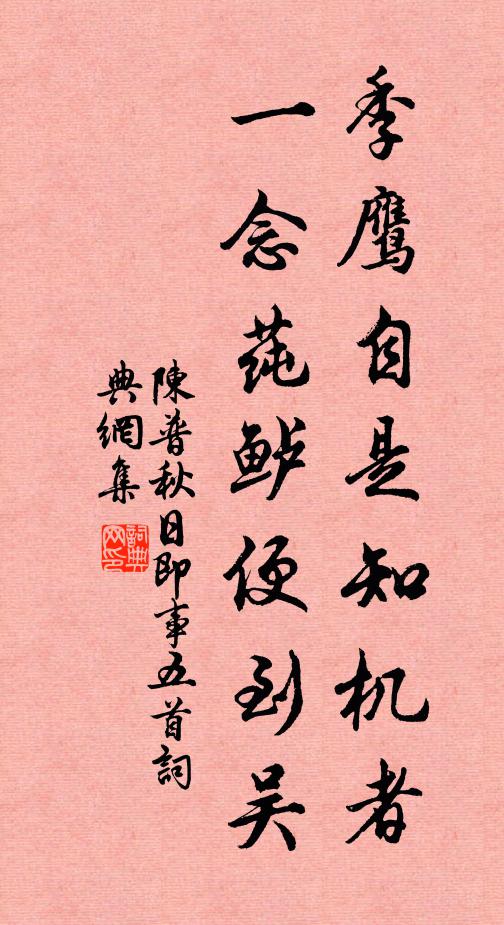 季鹰自是知机者
一念莼鲈便到吴
陳普秋日即事五首詞
典網集
詞典
网印